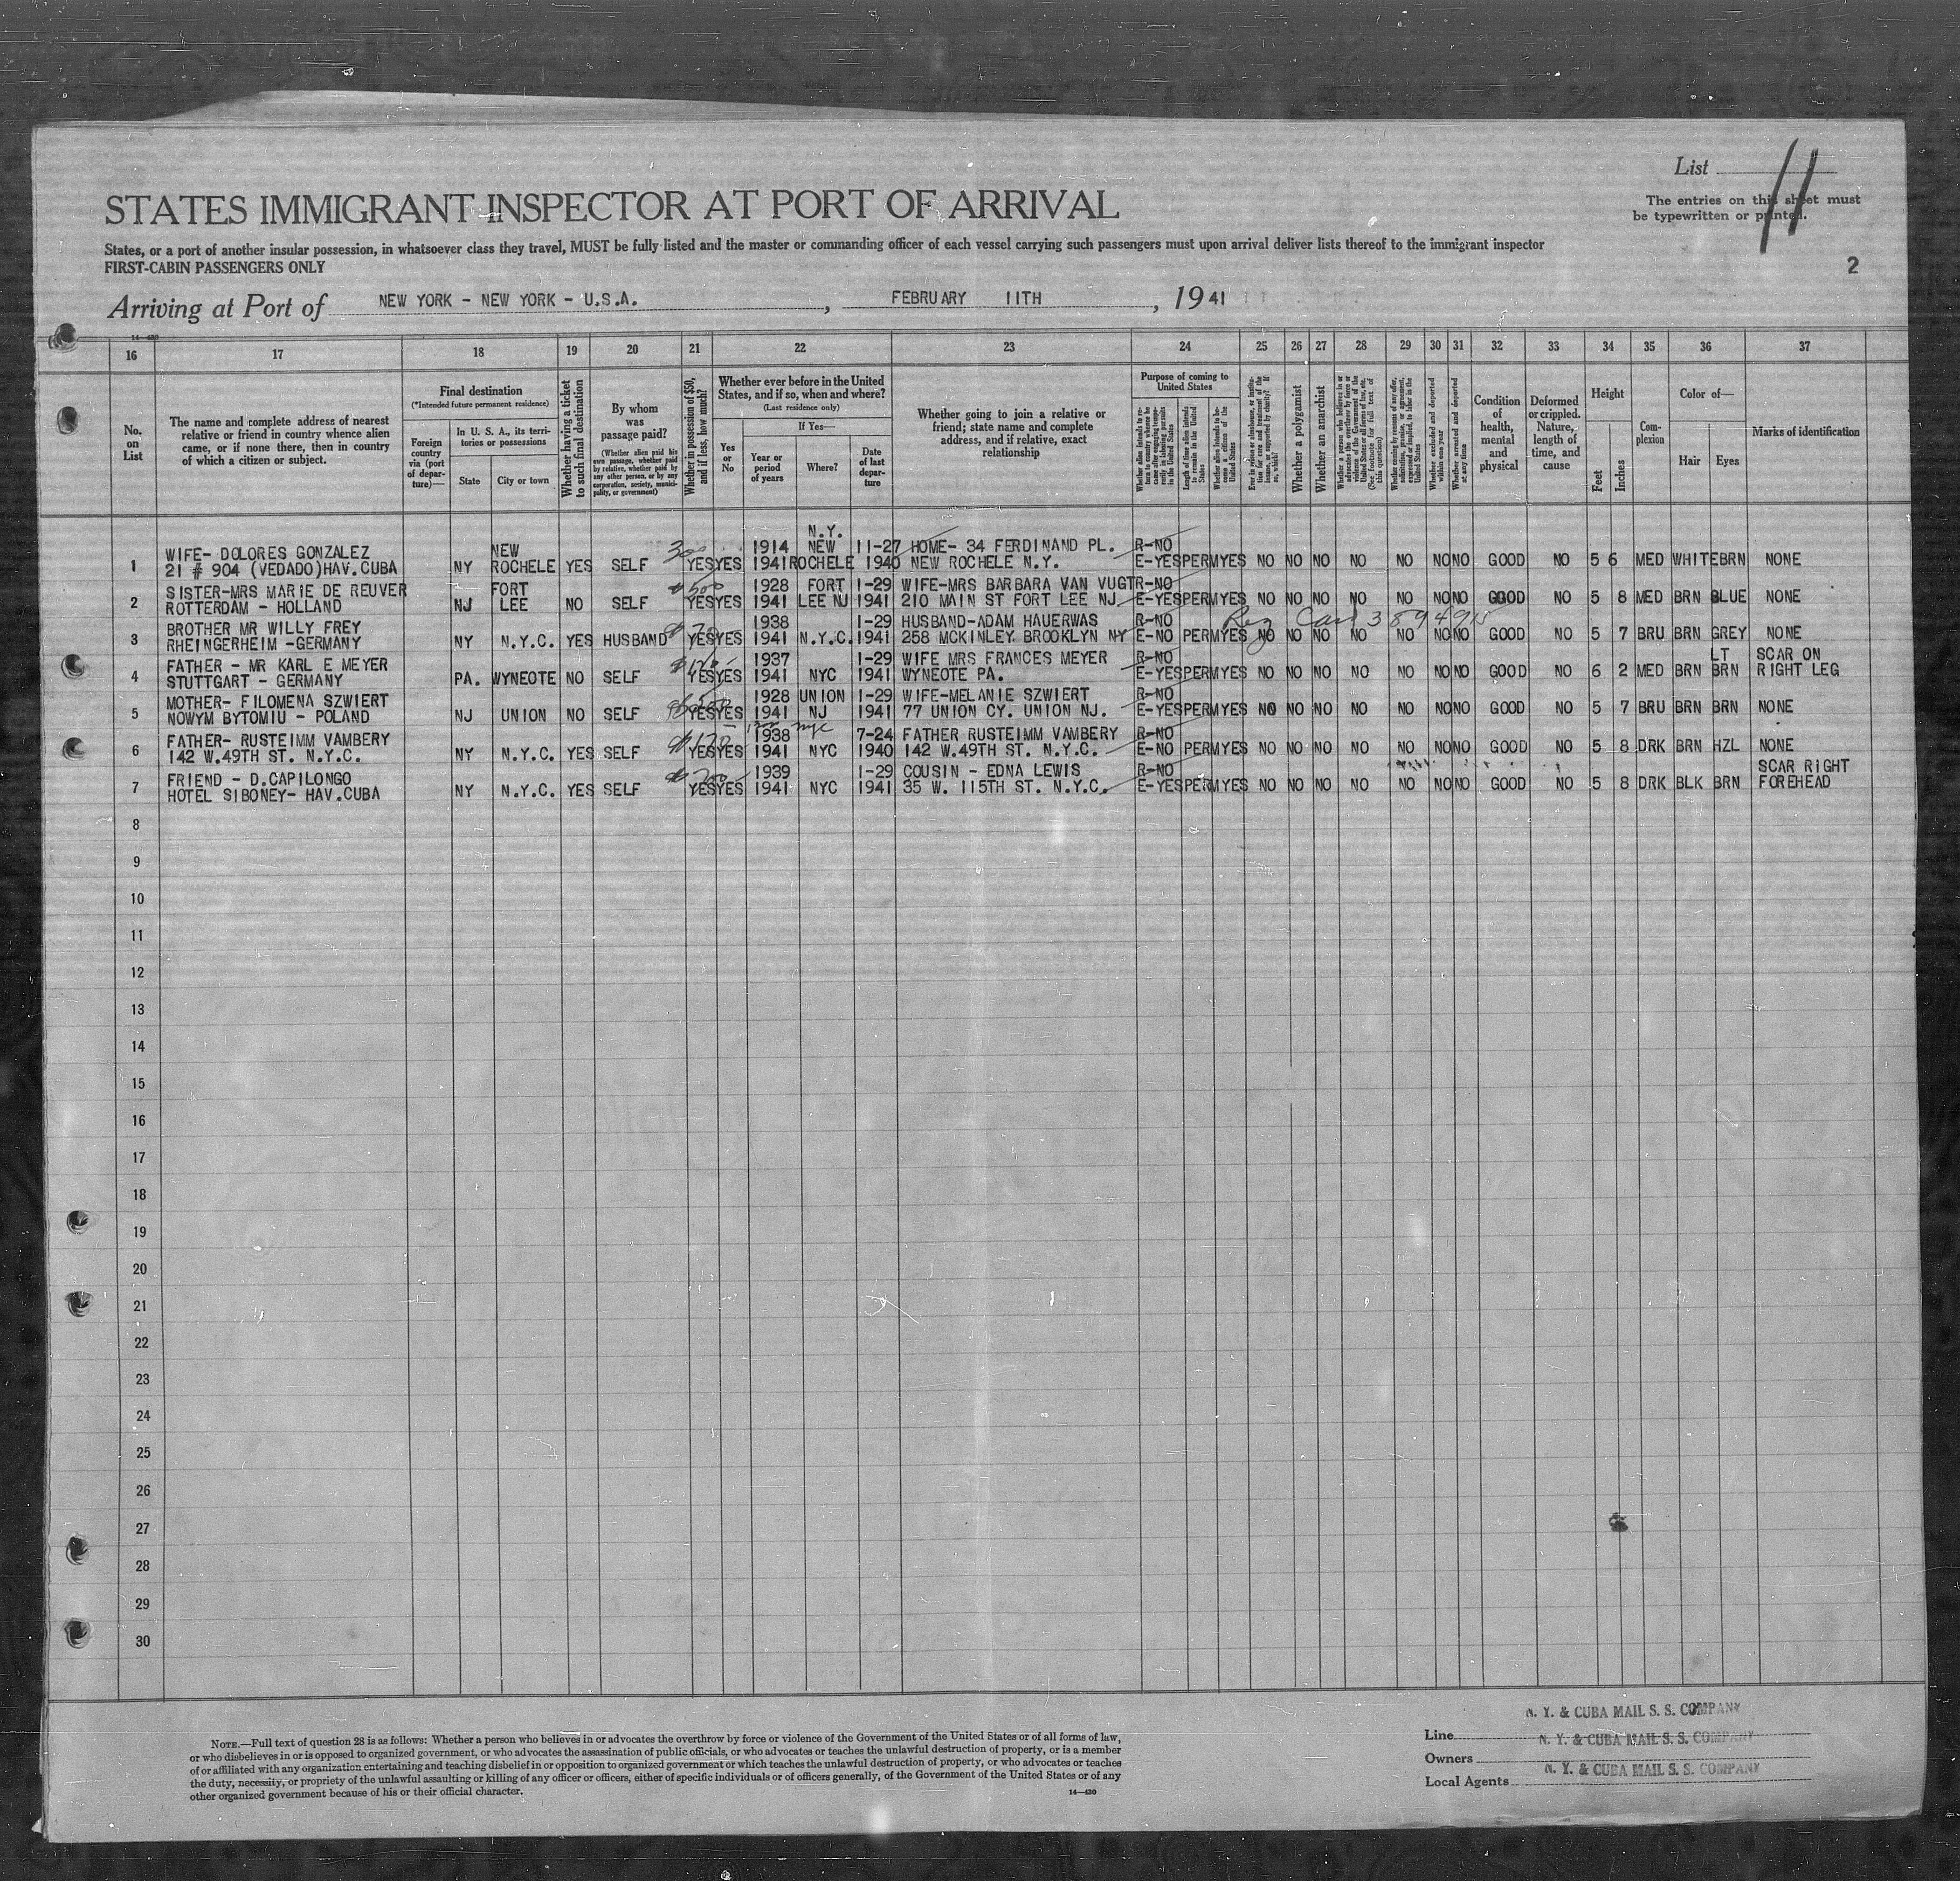 List 11
The entries on this sheet must
be typewritten or printed.
2
STATES IMMIGRANT INSPECTOR AT PORT OF ARRIVAL
States, or a port of another insular possession, in whatsoever class they travel, MUST be fully listed and the master or commanding officer of each vessel carrying such passengers must upon arrival deliver lists thereof to the immigrant inspector
FIRST-CABIN PASSENGERS ONLY
Arriving at Port of NEW YORK - NEW YORK - U.S.A. , FEBRUARY 11TH , 19 41
14-430
16 17 18 19 20 21 22 23 24 25 26 27 28 29 30 31 32 33 34 35 36 37
No. on List
The name and complete address of nearest relative or friend in country whence alien came, or if none there, then in country of which a citizen or subject.
Final destination
(*Intended future permanent residence)
Foreign country via (port of departure)—
In U. S. A., its territories or possessions
State
City or town
Whether having a ticket to such final destination
By whom was passage paid?
(Whether alien paid his own passage, whether paid by relative, whether paid by any other person, or by any corporation, society, municipality, or government)
Whether in possession of $50, and if less, how much?
Whether ever before in the United States, and if so, when and where?
(Last residence only)
Yes or No
If Yes—
Year or period of years
Where?
Date of last departure
Whether going to join a relative or friend; state name and complete address, and if relative, exact relationship
Purpose of coming to United States
Whether alien intends to return to country whence he came after engaging temporarily in laboring pursuits in the United States
Length of time alien intends to remain in the United States
Whether alien intends to become a citizen of the United States
Whether a polygamist
Whether an anarchist
Whether a person who believes in or advocates the overthrow by force or violence of the Government of the United States or all forms of law, etc. (See footnote for full text of this question)
Whether coming by reason of any offer, solicitation, promise, or agreement, expressed or implied, to labor in the United States
Whether excluded and deported within one year
Whether arrested and deported at any time
Condition of health, mental and physical
Deformed or crippled. Nature, length of time, and cause
Height
Feet
Inches
Complexion
Color of—
Hair
Eyes
Marks of identification
N.Y.
WIFE- DOLORES GONZALEZ NEW 300 1914 NEW 11-27 HOME- 34 FERDINAND PL. R-NO
1 21 # 904 (VEDADO)HAV.CUBA NY ROCHELE YES SELF YES YES 1941 ROCHELE 1940 NEW ROCHELE N.Y. E-YES PERM YES NO NO NO NO NO NO NO GOOD NO 5 6 MED WHITE BRN NONE
SISTER-MRS MARIE DE REUVER FORT 1928 FORT 1-29 WIFE-MRS BARBARA VAN VUGT R-NO
2 ROTTERDAM - HOLLAND NJ LEE NO SELF YES YES 1941 LEE NJ 1941 210 MAIN ST FORT LEE NJ E-YES PERM YES NO NO NO NO NO NO NO GOOD NO 5 8 MED BRN BLUE NONE
BROTHER MR WILLY FREY 1938 1-29 HUSBAND-ADAM HAUERWAS R-NO
3 RHEINGERHEIM -GERMANY NY N.Y.C. YES HUSBAND YES YES 1941 N.Y.C. 1941 258 MCKINLEY BROOKLYN NY E-NO PERM YES NO NO NO NO NO NO NO GOOD NO 5 7 BRU BRN GREY NONE
FATHER - MR KARL E MEYER 1937 1-29 WIFE MRS FRANCES MEYER R-NO LT SCAR ON
4 STUTTGART - GERMANY PA. WYNEOTE NO SELF YES YES 1941 NYC 1941 WYNEOTE PA. E-YES PERM YES NO NO NO NO NO NO NO GOOD NO 6 2 MED BRN BRN RIGHT LEG
MOTHER- FILOMENA SZWIERT 1928 UNION 1-29 WIFE-MELANIE SZWIERT R-NO
5 NOWYM BYTOMIU - POLAND NJ UNION NO SELF YES YES 1941 NJ 1941 77 UNION CY. UNION NJ. E-YES PERM YES NO NO NO NO NO NO NO GOOD NO 5 7 BRU BRN BRN NONE
FATHER- RUSTEIMM VAMBERY nyc 1938 7-24 FATHER RUSTEIMM VAMBERY R-NO
6 142 W.49TH ST. N.Y.C. NY N.Y.C. YES SELF YES YES 1941 NYC 1940 142 W.49TH ST. N.Y.C. E-NO PERM YES NO NO NO NO NO NO NO GOOD NO 5 8 DRK BRN HZL NONE
FRIEND - D.CAPILONGO 1939 1-29 COUSIN - EDNA LEWIS R-NO SCAR RIGHT
7 HOTEL SIBONEY- HAV.CUBA NY N.Y.C. YES SELF YES YES 1941 NYC 1941 35 W. 115TH ST. N.Y.C. E-YES PERM YES NO NO NO NO NO NO NO GOOD NO 5 8 DRK BLK BRN FOREHEAD
8
9
10
11
12
13
14
15
16
17
18
19
20
21
22
23
24
25
26
27
28
29
30
NOTE.—Full text of question 28 is as follows: Whether a person who believes in or advocates the overthrow by force or violence of the Government of the United States or of all forms of law,
or who disbelieves in or is opposed to organized government, or who advocates the assassination of public officials, or who advocates or teaches the unlawful destruction of property, or is a member
of or affiliated with any organization entertaining and teaching disbelief in or opposition to organized government or which teaches the unlawful destruction of property, or who advocates or teaches
the duty, necessity, or propriety of the unlawful assaulting or killing of any officer or officers, either of specific individuals or of officers generally, of the Government of the United States or of any
other organized government because of his or their official character.
14-430
N. Y. & CUBA MAIL S. S. COMPANY
Line N. Y. & CUBA MAIL S. S. COMPANY
Owners N. Y. & CUBA MAIL S. S. COMPANY
Local Agents